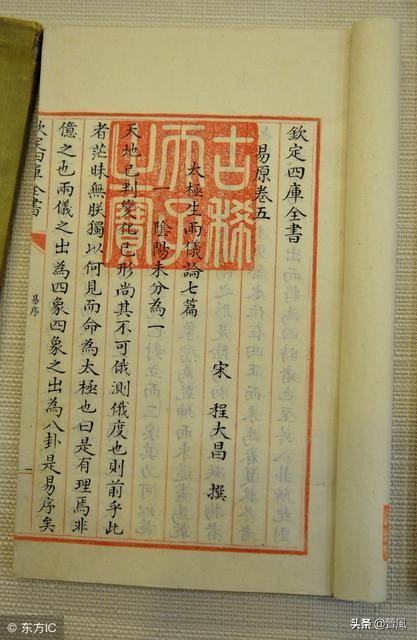 欽定四庫全書
易原卷五
宋 程大昌 撰
太極生兩儀論七篇
一 陰陽未分為一
天地已判變化已形尚其不可俄測俄度也則前乎此
者茫昧無朕獨以何見而命為太極也曰是有理焉非
億之也兩儀之出為四象四象之出為八卦是易序矣
欽定四庫全書
易序
一
古稀天子之寶
© 东方IC
头条@萱風